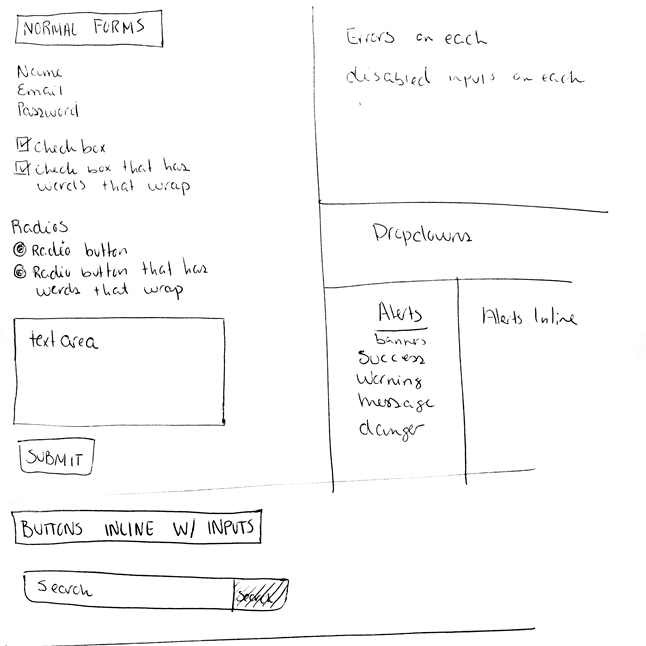 NORMAL FORMS
Name
Email
Password
Check box
Check box that has
words that wrap
Radios
Radio button
Radio button that has
words that wrap
text area
SUBMIT
Errors on each
disabled inputs on each
Dropdowns
Alerts
banners
Success
Warning
message
danger
Alerts Inline
BUTTONS INLINE W/ INPUTS
Search
Search